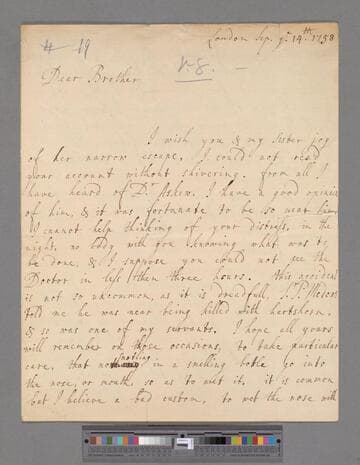 London Sep. ye 14th 1758
# 19
N.8. —
Dear Brother
I wish you & my sister joy
of her narrow escape, I could not read
your account without shivering. from all I
have heard of Dr. Askew. I have a good opinion
of him, & it was fortunate to be so near him,
I cannot help thinking of your distress, in the
night, no body with you knowing what was to
be done, & I suppose you could not see the
Doctor in less then three hours. this accident
is not so uncommon, as it is dreadfull,
told me he was near being killed with hartshorn.
& so was one of my servants. I hope all yours
will remember on those occasions, to take particular
care, that no smelling in a smelling botle go into
the nose, or mouth, so as to wet it. it is common
but I believe a bad custom, to wet the nose with